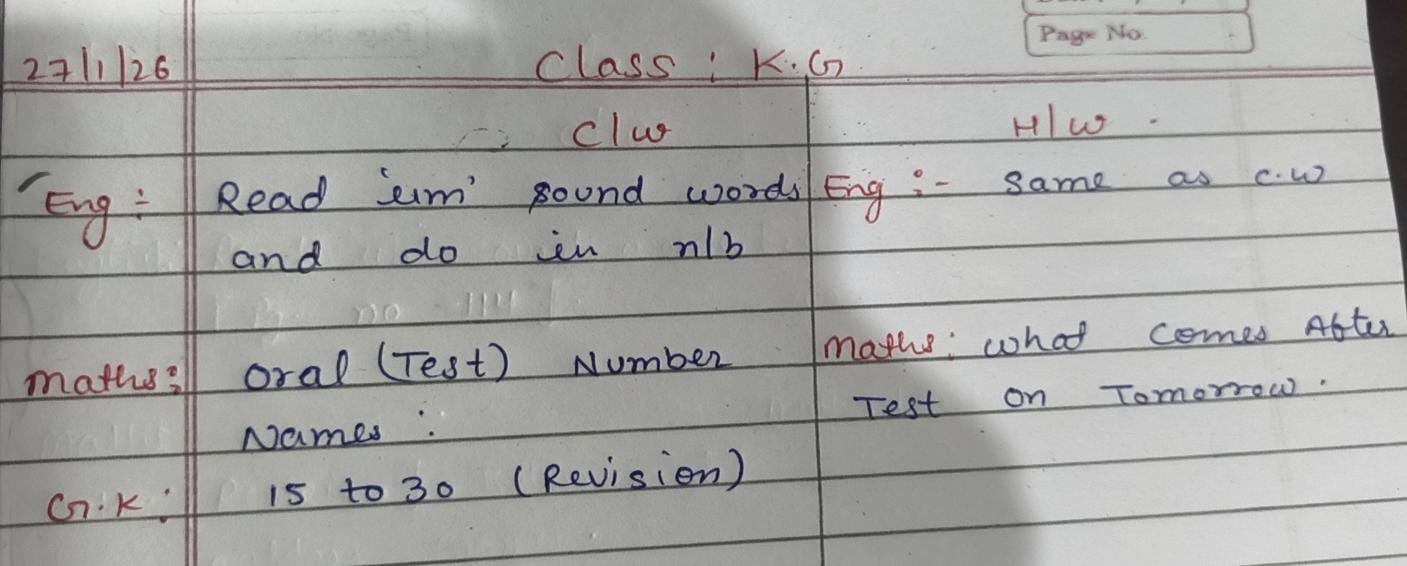 Page No.
27/1/26 Class : K.G
C/w H/w .
Eng :- Read 'um' sound words Eng :- Same as c.w
and do in n/b
Maths: Oral (Test) Number Maths: What Comes After
Names : Test on Tomorrow.
G.K : 15 to 30 (Revision)